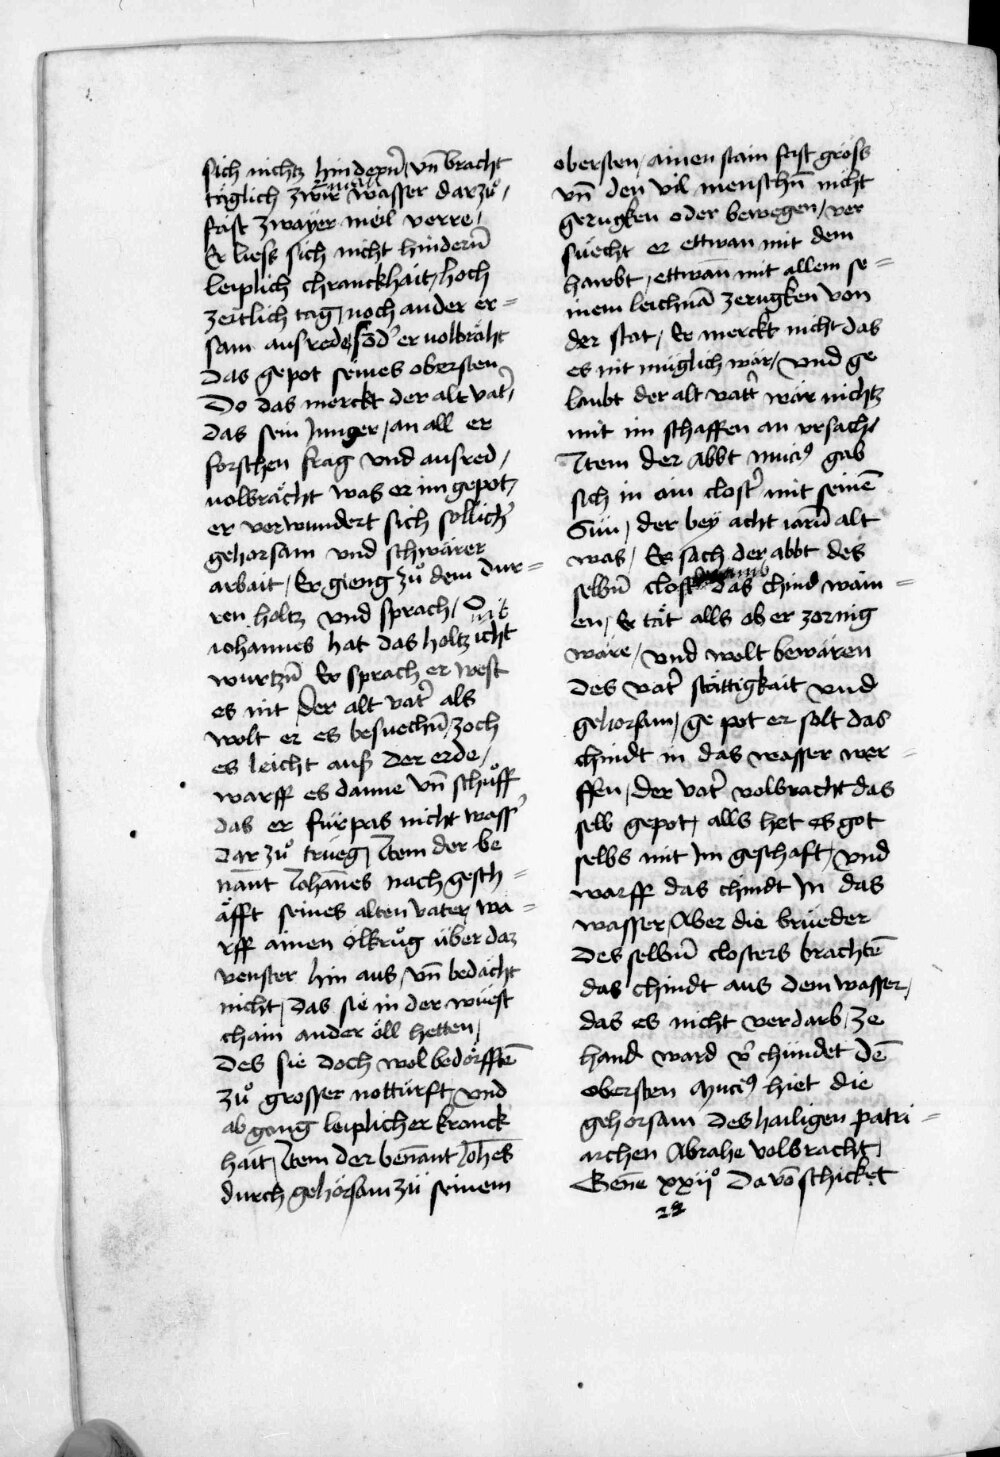 sich nichtz hindern̄ / vn̄ bracht
täglich zwir wasser darzuͦ /
fast zwayer meil verre /
Er liess sich nicht hindern̄
leiplich chranckhait / hoch
zeitlich tag / noch ander er =
sam ausrede / sōd' er uolbräht
Das gepot seines obersten
Do das merckt der alt vat' /
das sein Junger / an all er
forschen frag vnd ausred /
uolbrächt was er im gepot /
er verwundert sich sollich'
gehorsam vnd schwärer
arbait / Er gieng zuͦ dem dur =
ren holtz vnd sprach / O
iohannes hat das holtz icht
wurtzn̄ Er sprach er west
es nit / der alt vat' als
wolt er es besuechn̄ / zoch
es leicht auß der erde /
warff es danne vn̄ schuͦff
das er fürpas nicht wass'
dar zuͦ trueg / Item der be
nānt Iohān̄es nach gesch =
äfft seines alten vater / wa =
rff ainen ölkruͦg über daz
venster hin aus / vn̄ bedächt
nicht / das sie in der wüest
chain ander öll hetten /
des sie doch wol bedörfftē
zuͦ grosser notturft / vnd
abgang leiplicher kranck
hait / Item der benānt Joh̄es
durch gehörsam zü seinem
obersten / ainen stain fast gröss
vn̄ den vil menschn̄ nicht
gerugken oder bewegen / ver
süecht er ettwan mit dem
hawbt / ettwan̄ mit allem se =
inem leichnā zerugken von
der stat / Er merckt nicht das
es nit müglich wär / vnd ge
laubt der alt vatt' wär nichtz
mit im schaffen an vrsach /
Item der Abbt muci⁹ gab
sich in ain clost' mit seinē
Sün / der bey acht iarn̄ alt
was / Er sach der abbt des
selbn̄ clost' das chind wain =
en / Er tät alls ob er zornig
wäre / vnd wolt bewären
des vat' stättigkait vnd
gehorsam / gepot er solt das
chindt in das wasser wer =
ffen / der vat' volbracht das
selb gepot / alls het es got
selbs mit Im geschaft / vnd
warff das chindt In das
wasser / Aber die brüeder
des selbn̄ closters brachtē
das chindt aus dem wasser /
das es nicht verdarb / ze
hand ward v'chündet dē
obersten Muci⁹ hiet die
gehorsam des hailigen patri =
archen Abrahe volbracht /
Gene xxijº Da vō schicket